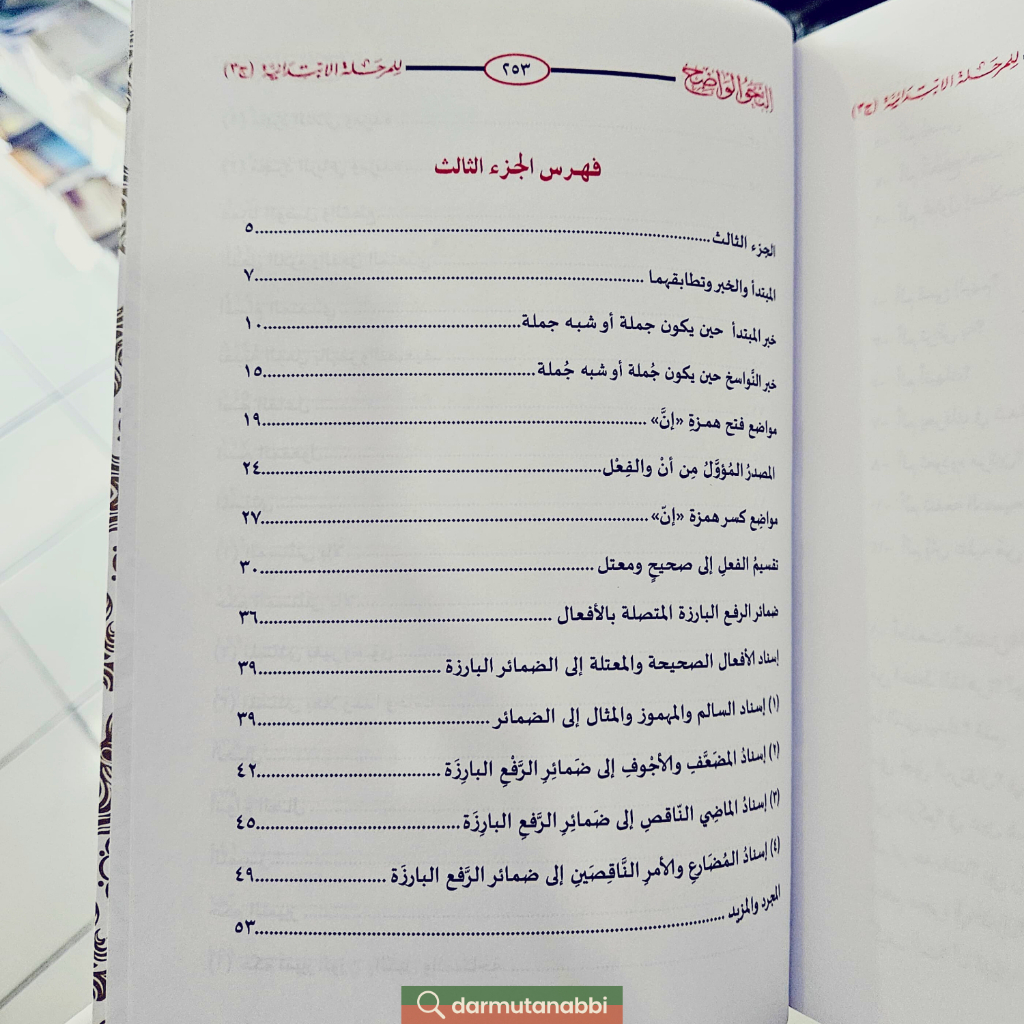 النحو الواضح ٢٥٣ للمرحلة الابتدائية (ج٣)
فهرس الجزء الثالث
الجزء الثالث ٥
المبتدأ والخبر وتطابقهما ٧
خبر المبتدأ حين يكون جملة أو شبه جملة ١٠
خبر النَّواسخ حين يكون جُملة أو شبه جُملة ١٥
مواضع فتح همزةِ «إنَّ» ١٩
المصدرُ المُؤوَّلُ مِن أنْ والفِعْل ٢٤
مواضِع كسر همزة «إنّ» ٢٧
تقسيمُ الفعلِ إلى صحيحٍ ومعتل ٣٠
ضمائر الرفع البارزة المتصلة بالأفعال ٣٦
إسناد الأفعال الصحيحة والمعتلة إلى الضمائر البارزة ٣٩
(١) إسناد السالم والمهموز والمثال إلى الضمائر ٣٩
(٢) إسنادُ المضَعَّفِ والأجْوفِ إلى ضَمائِرِ الرَّفْعِ البارِزَة ٤٢
(٣) إسنادُ الماضِي النّاقصِ إلى ضَمائِرِ الرَّفعِ البارِزَة ٤٥
(٤) إسنادُ المُضَارِعِ والأمرِ النَّاقِصَينِ إلى ضمائر الرَّفع البارزَة ٤٩
المجرد والمزيد ٥٣
للمرحلة الابتدائية (ج٣)
darmutanabbi